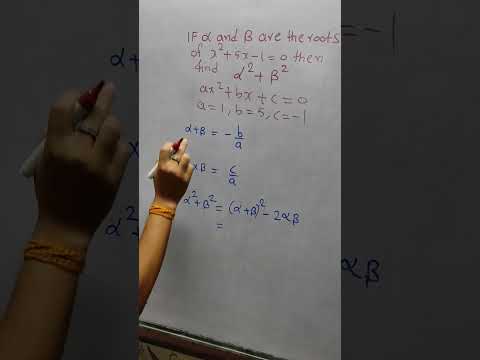 IF α and β are the roots
of x²+5x-1=0 then
find α²+β²
ax²+bx+c=0
a=1, b=5, c=-1
α+β = -b/a
β = c/a
α²+β² = (α+β)² - 2αβ
=